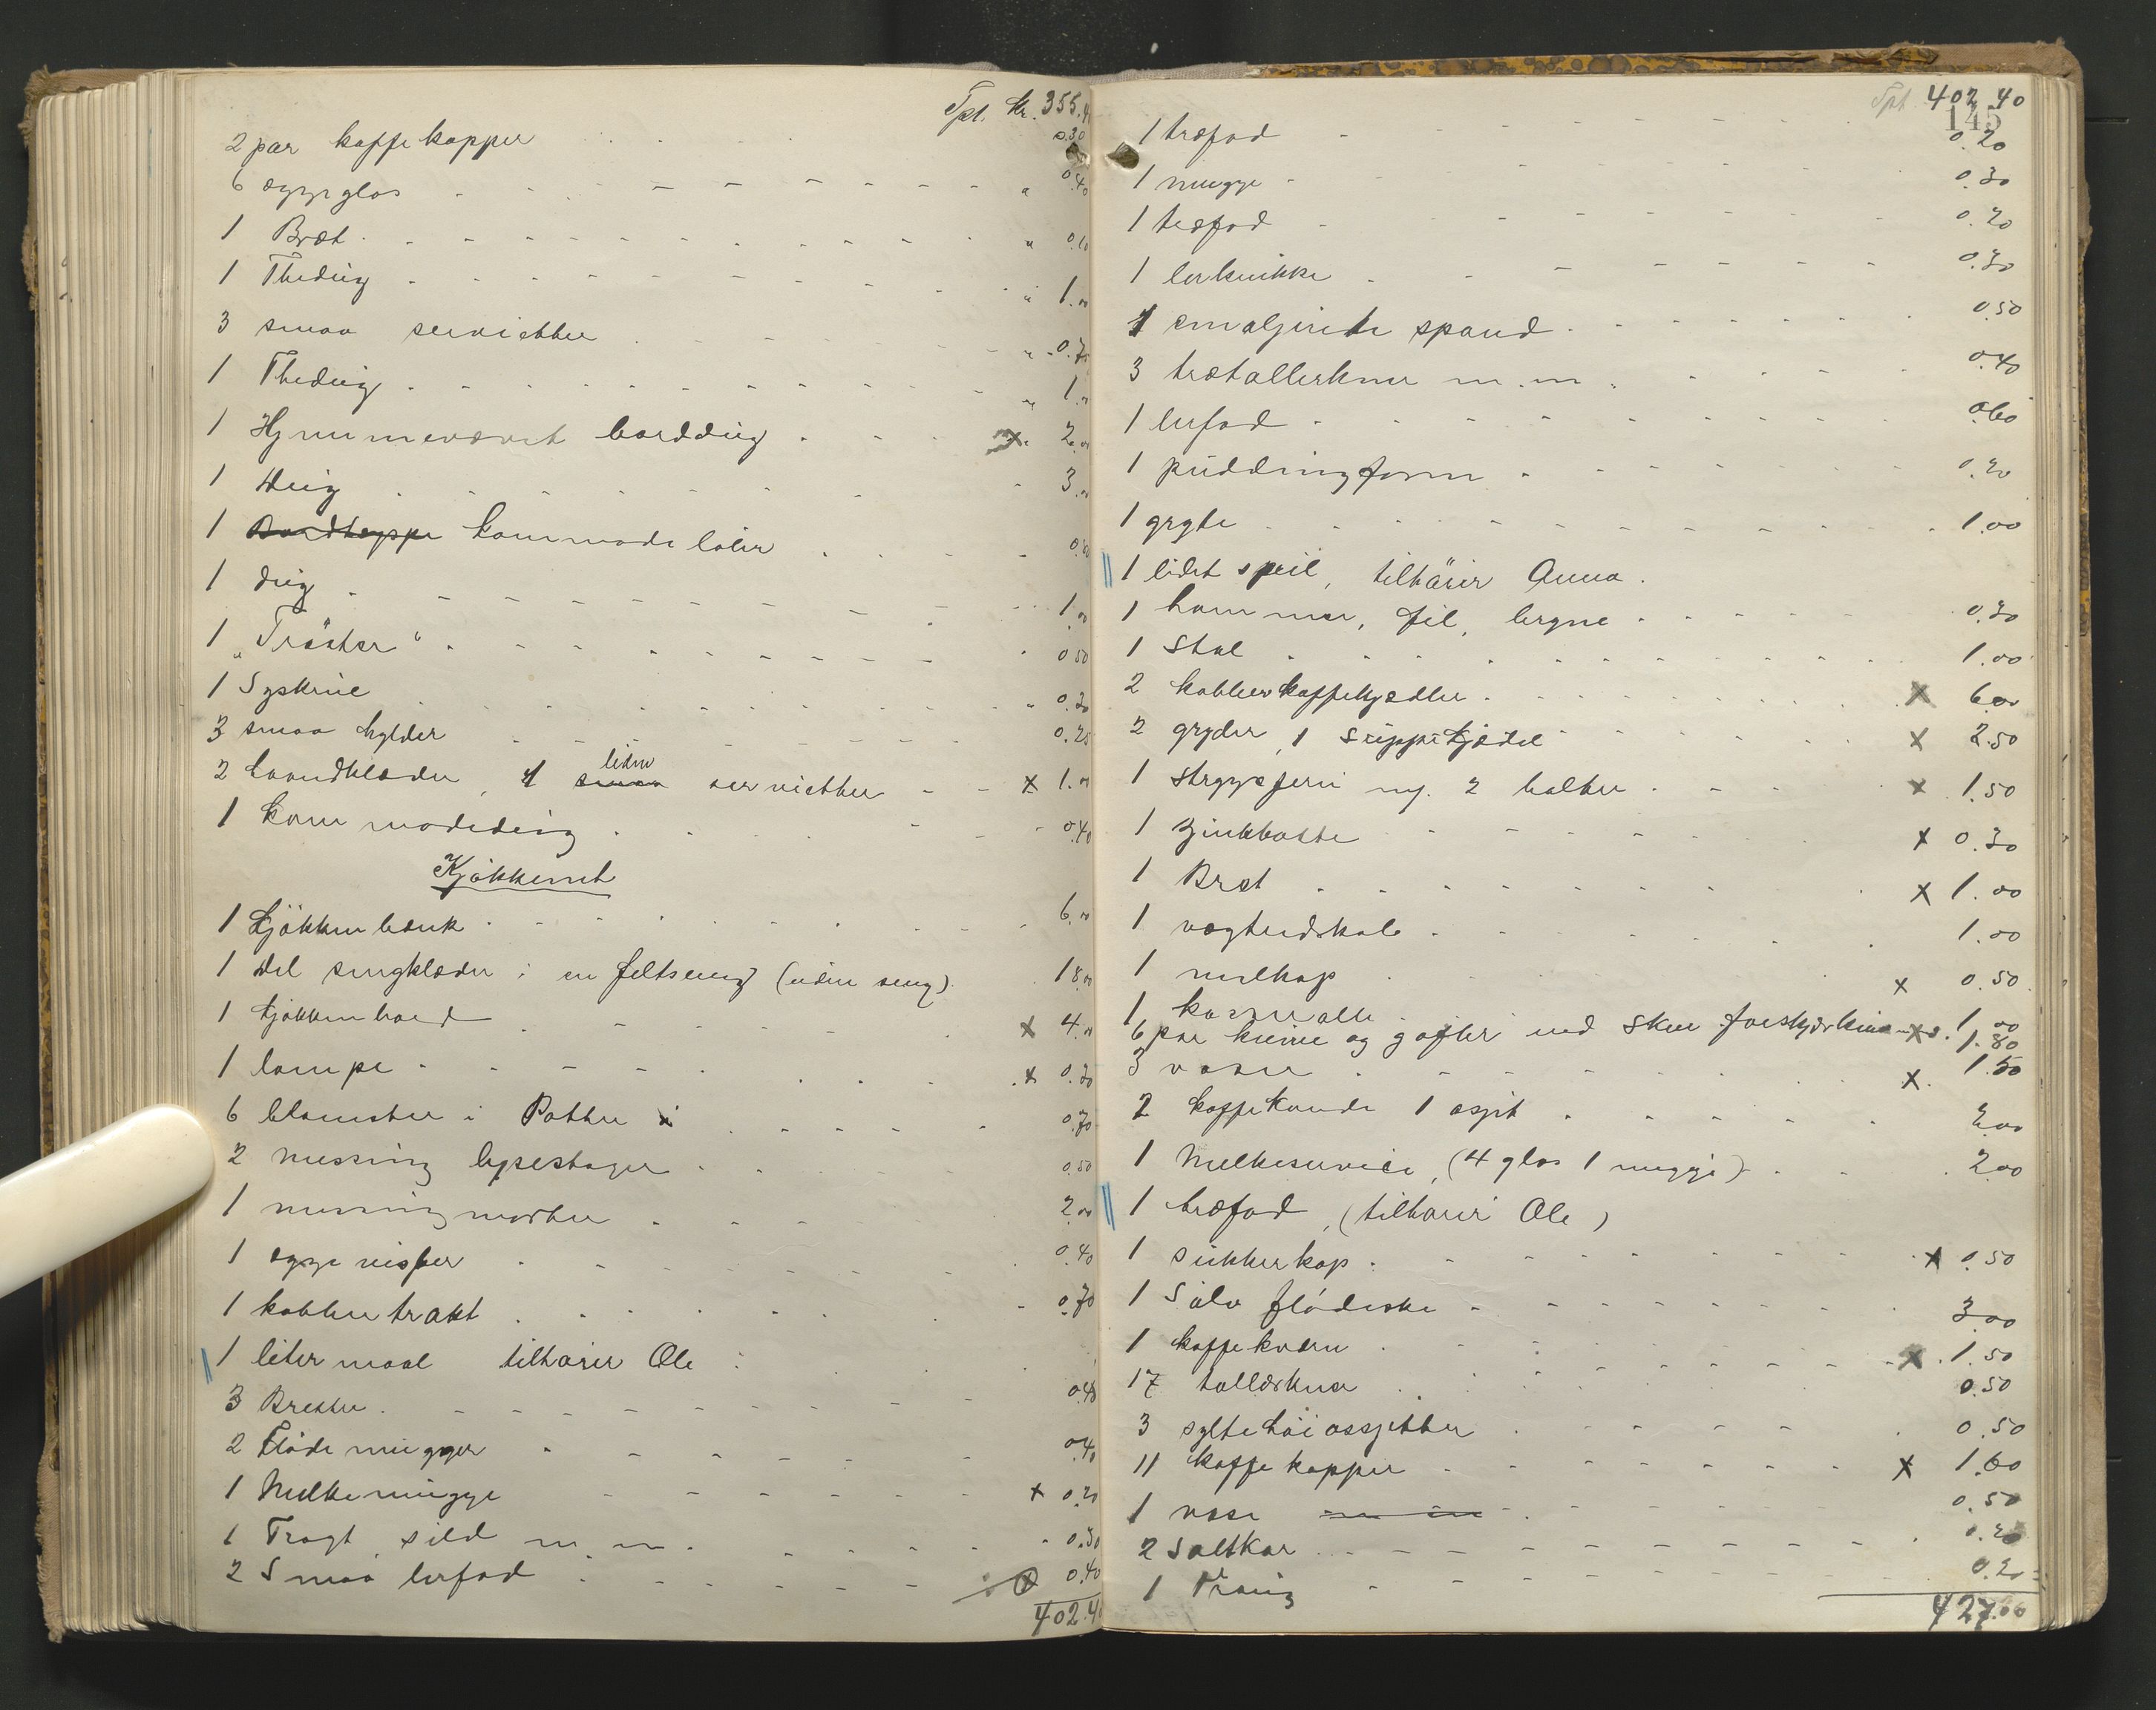 Tpt. Kr. 355.4
2 par kaffekopper 0.30
6 æggeglas " 0.40
1 Bret " 0.10
1 Thedug " 1.00
3 smaa servietter " 0.75
1 Thedug " 1.00
1 Hjemmevævet borddug x " 2.00
1 dug 3.00
1 Bordteppe kommodeløber
1 dug 1.00
1 "Trøster" 0 50
1 Syskrin " 0.20
3 smaa hylder 0.25
2 haandklæder, 1 smaa liden servietter x 1.00
1 kommodedug 0.40
Kjøkkenet
1 kjøkkenbænk 6.00
1 del sengklæder i en feltseng (uden seng) 18.00
1 kjøkkenbord x 4.00
1 lampe x 0.20
6 blomster i Potter 0.70
2 messing lysestager 0.50
1 messingmorter 2.00
1 eggevisper 0.40
1 kobbertrakt 0.70
1 litermaal tilhører Ole
3 Bretter 0.40
2 Fløde mugger 0.40
1 Melkemugge x 0.20
1 Tragt, sild m.m. 0.50
2 Smaa lerfad 0.40
402.40
Tpt 402 40
145
1 træfad 0.20
1 mugge 0.30
1 træfad 0.20
1 lerkrukke 0.30
1 emaljerete spand 0.50
3 trætallerkner m.m. 0.40
1 lerfad 0.60
1 puddingform 0.20
1 gryte 1.00
1 lidet speil, tilhører Anna.
1 hammer, fil, 0.30
1 Stol 1.00
2 kobberkaffekjedler x 6.00
2 gryder, 1 suppekjedel x 2.50
1 Strygejern og 2 bolter x 1.50
1 zinkbøtte x 0.30
1 Bret x 1.00
1 vægtendskaal 1.00
1 melkop x 0.50
1 kasserolle 1.00
6 par knive og gafler med skee x 1.80
3 vaser x 1.50
2 kaffekande 1 asjet 2.00
1 Melkeservice, (4 glas 1 mugge) 2.00
1 træfad, (tilhører Ole)
1 sukkerkop x 0.50
1 Sølv flødeske 3.00
1 kaffekværn x 1.50
17 tallerkner 0.50
3 syltetøi assjetter 0.50
11 kaffekopper x 1.60
1 vase 0.50
2 Saltkar 0.20
1 0.20
427.60